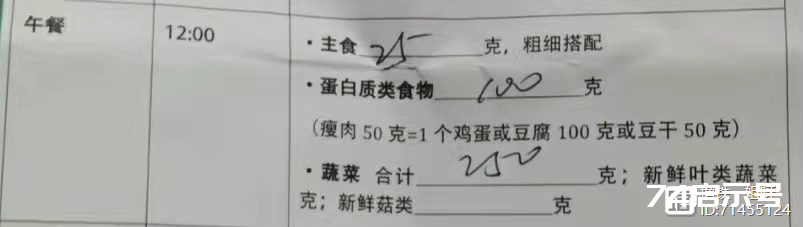 午餐
12:00
·主食 25 克，粗细搭配
·蛋白质类食物 100 克
（瘦肉 50 克=1 个鸡蛋或豆腐 100 克或豆干 50 克）
·蔬菜 合计 250 克；新鲜叶类蔬菜
克；新鲜菇类 克
ID:71455124